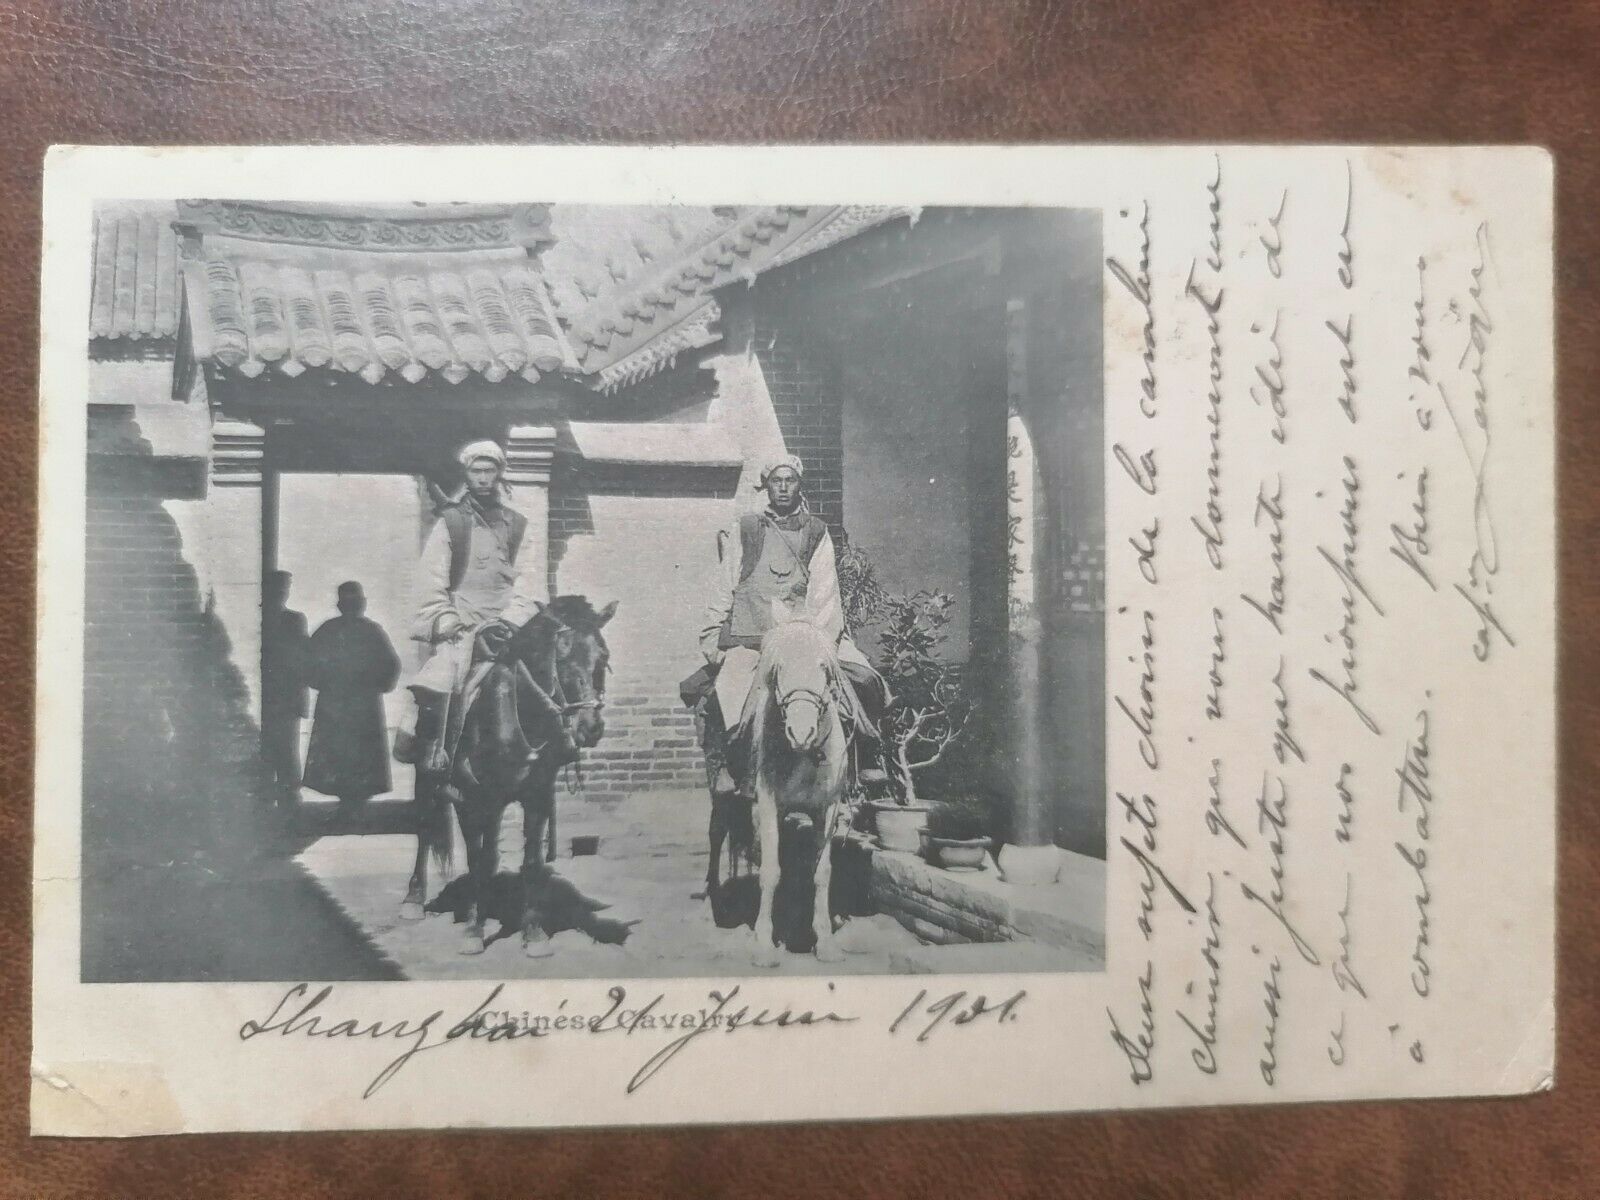 Chinese Cavalry
Shanghai 21 Juin 1901.
Deux sujets choisis de la cavalerie
chinoise qui vous donneront une
aussi juste que haute idée de
ce que nos pioupious ont eu
à combattre. Bien à vous